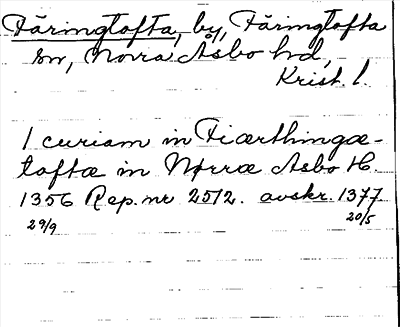 Färingtofta, by, Färingtofta
sn, Norra Åsbo hd,
Krist. l.
1 curiam in Fiærthingæ-
toftæ in Nørræ Asbo H.
1356 Rep. nr 2512. avskr. 1377
29/9 20/5